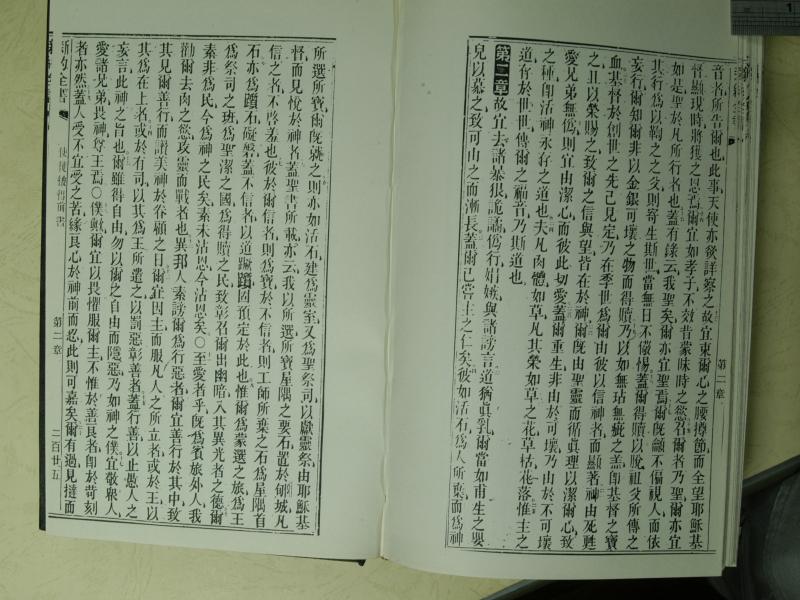 音者所告爾也此事天使亦欲詳察之故宜束爾心之腰撙節而全望耶穌基
督顯現時將獲之恩焉爾宜如孝子不效昔蒙昧時之慾召爾者乃聖爾亦宜
如是聖於凡所行者也蓋有錄云我聖矣爾亦宜聖焉爾旣籲不偏視人而依
其行爲以鞫之之父則寄生斯世當無日不儼惕蓋爾得贖以脫祖父所傳之
妄行爾知爾非以金銀可壞之物而得贖乃以如無玷無疵之羔卽基督之寶
血基督於創世之先已見定乃在季世爲爾由彼以信神者而顯著神由死甦
之且以榮賜之致爾之信與望皆在於神爾旣由聖靈而循眞理以潔爾心致
愛兄弟無僞則宜由潔心而彼此切愛蓋爾重生非由於可壞乃由於不可壞
之種卽活神永存之道也夫凡肉體如草凡其榮如草之花草枯花落惟主之
道存於世世傳爾之福音乃斯道也
第二章故宜去諸暴狠詭譎僞行娼嫉與諸謗言道猶眞乳爾當如甫生之嬰
兒以慕之致可由之而漸長蓋爾已嘗主之仁矣彼如活石爲人所棄而爲神
第二章
所選所寶爾旣就之則亦如活石建爲靈室又爲聖祭司以獻靈祭由耶穌基
督而見悅於神者蓋聖書所載亦云我以所選所寶屋隅之要石置於郇城凡
信之者不啓羞也彼於爾信者則爲寶於不信者則工師所棄之石爲屋隅首
石亦爲躓石礙磐蓋不信者以道蹶躓固預定於此也惟爾爲蒙選之族爲王
爲祭司之班爲聖潔之國爲得贖之民致彰召爾出幽暗入其異光者之德爾
素非爲民今爲神之民矣素未沾恩今沾恩矣○至愛者乎旣爲賓旅外人我
勸爾去肉之慾攻靈而戰者也異邦人素謗爾爲行惡者爾宜善行於其中致
其見爾善行而讚美神於眷顧之日爾宜因主而服凡人之所立者或於王以
其爲在上者或於有司以其爲王所遣之以罰惡彰善者蓋行善以止愚人之
妄言此神之旨也爾雖得自由勿以爾之自由而隱惡乃如神之僕宜敬衆人
愛諸兄弟畏神尊王焉○僕歟爾宜以畏懼服爾主不惟於善良者卽於苛刻
者亦然蓋人受不宜受之苦緣良心於神前而忍此則可嘉矣爾有過見撻而
新約全書
使徒彼得前書
第二章
二百廿五